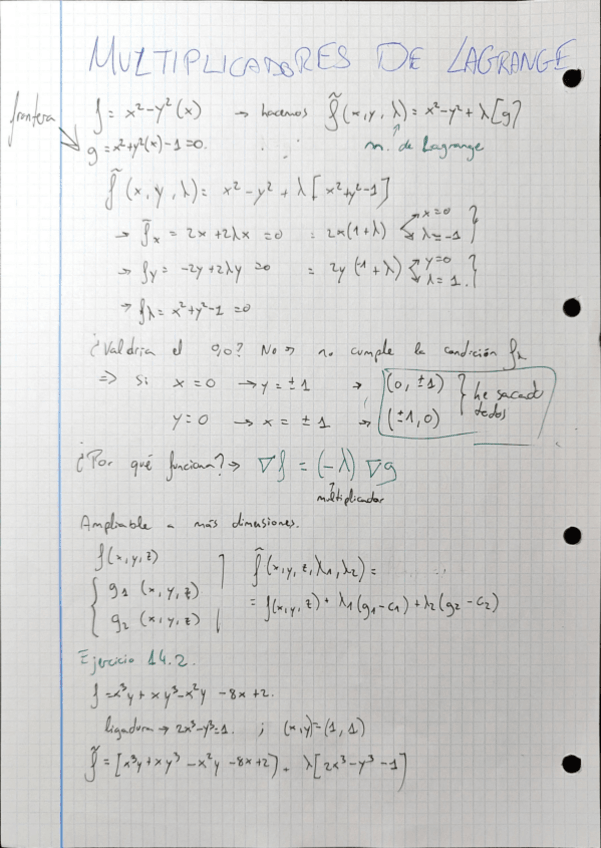 MULTIPLICADORES DE LAGRANGE
frontera
f = x²-y² (x) → hacemos f̃(x,y,λ) = x²-y² + λ[g]
g = x²+y²(x)-1 = 0.
m. de Lagrange
f̃(x,y,λ) = x²-y² + λ[x²+y²-1]
→ f̃x = 2x+2λx = 0 = 2x(1+λ) x=0 λ=-1
→ fy = -2y+2λy = 0 = 2y(-1+λ) y=0 λ=1.
→ fλ = x²+y²-1 = 0
¿Valdría el 0,0? No → no cumple la condición fλ
=> si x=0 → y=±1 → (0, ±1)
y=0 → x=±1 → (±1, 0)
he sacado
¿Por qué funciona? → ∇f = (-λ) ∇g
multiplicador
Ampliable a más dimensiones.
f(x,y,z)
g1 (x,y,z)
g2 (x,y,z)
f̃(x,y,z,λ1,λ2) =
= f(x,y,z) + λ1(g1-c1) + λ2(g2-c2)
Ejercicio 14.2.
f = x³y + xy³ - x²y - 8x + 2.
ligadura → 2x³-y³=1. ; (x,y)=(1,1)
f̃ = [x³y + xy³ - x²y - 8x + 2] + λ[2x³-y³-1]